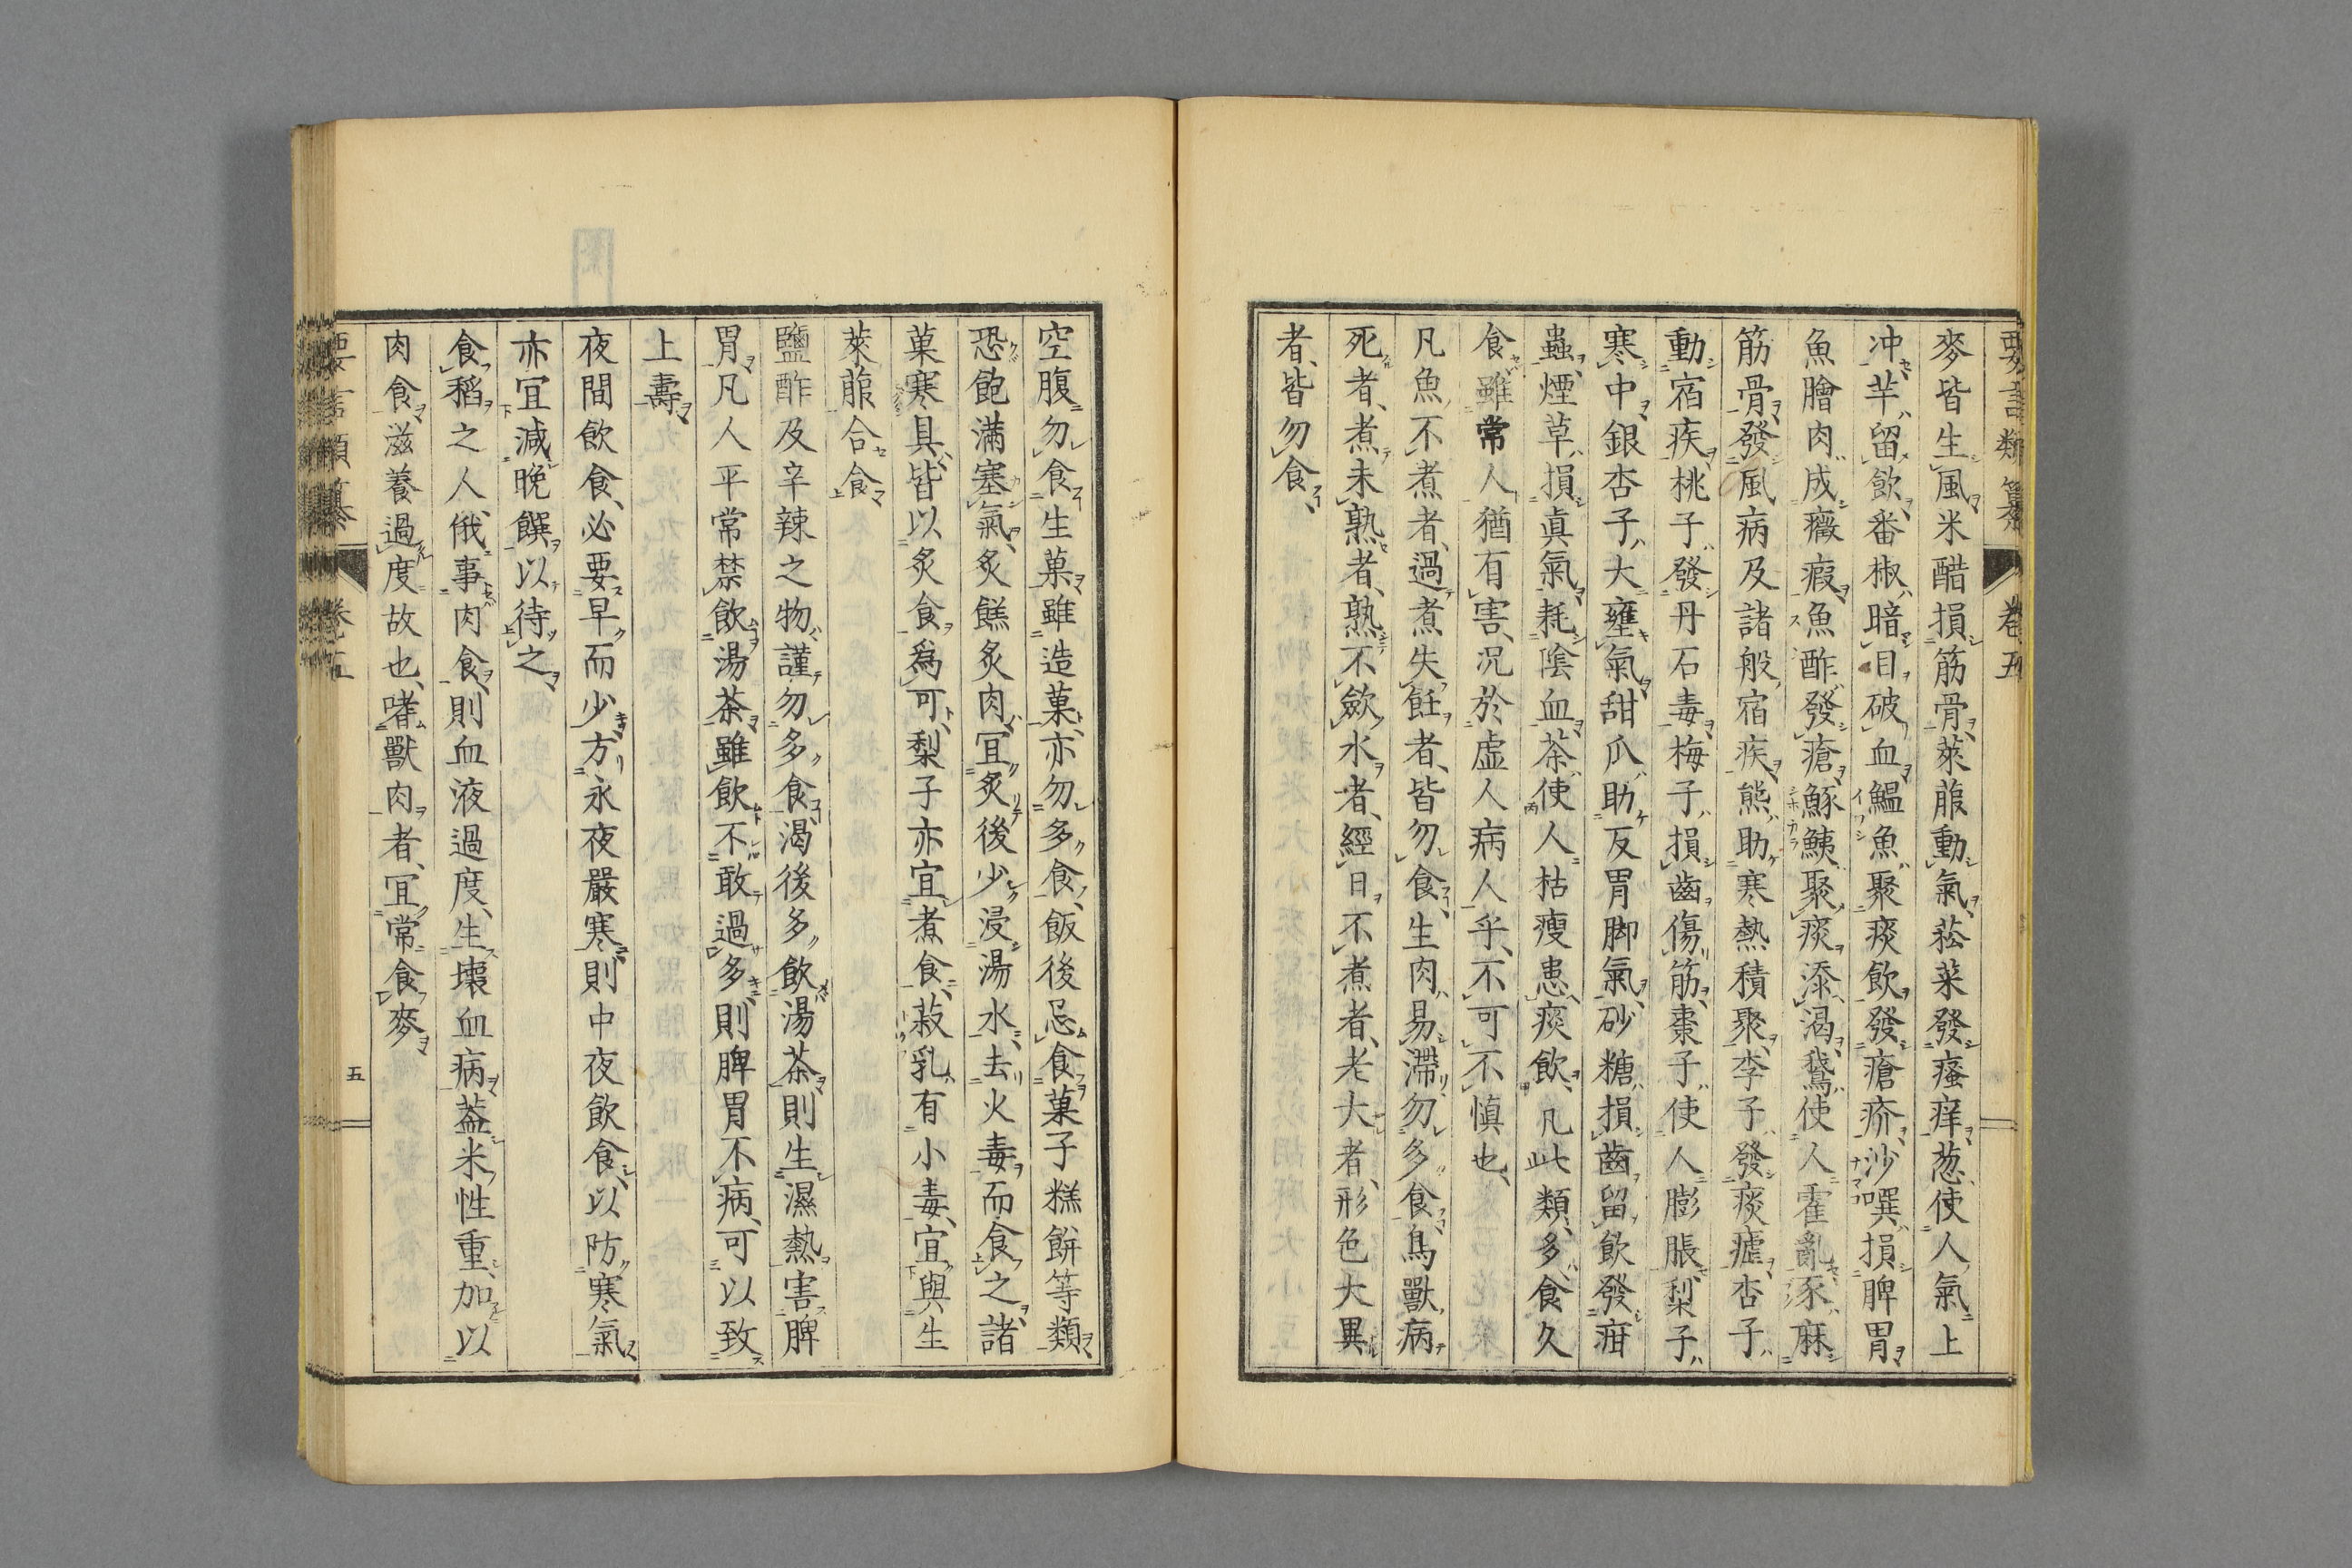 要言類纂 卷五
麥皆生風米醋損筋骨萊菔動氣菘菜發瘙痒葱使人氣上
冲芋留飲番椒暗目破血鰮魚聚痰飲發瘡疥沙噀損脾胃
魚膾肉成癥瘕魚酢發瘡鯀鮧聚痰添渴鵞使人霍亂豕麻
筋骨發風病及諸般宿疾熊助寒熱積聚李子發痰瘧杏子
動宿疾桃子發丹石毒梅子損齒傷筋棗子使人膨脹梨子
寒中銀杏子大壅氣甜瓜助反胃脚氣砂糖損齒留飲發疳
蟲煙草損眞氣耗陰血茶使人枯瘦患痰飲凡此類多食久
食雖常人猶有害況於虛人病人乎不可不愼也
凡魚不煮者過煮失飪者皆勿食生肉易滯勿多食鳥獸病
死者煮未熟者熟不歛水者經日不煮者老大者形色大異
者皆勿食
空腹勿食生菓雖造菓亦勿多食飯後忌食菓子糕餅等類
恐飽滿塞氣炙餻炙肉宜炙後少浸湯水去火毒而食之諸
菓寒具皆以炙食爲可梨子亦宜煮食菽乳有小毒宜與生
萊菔合食
鹽酢及辛辣之物謹勿多食渴後多飲湯茶則生濕熱害脾
胃凡人平常禁飲湯茶雖飲不敢過多則脾胃不病可以致
上壽
夜間飲食必要早而少方永夜嚴寒則中夜飲食以防寒氣
亦宜減晚饌以待之
食稻之人俄事肉食則血液過度生壞血病蓋米性重加以
肉食滋養過度故也嗜獸肉者宜常食麥
五